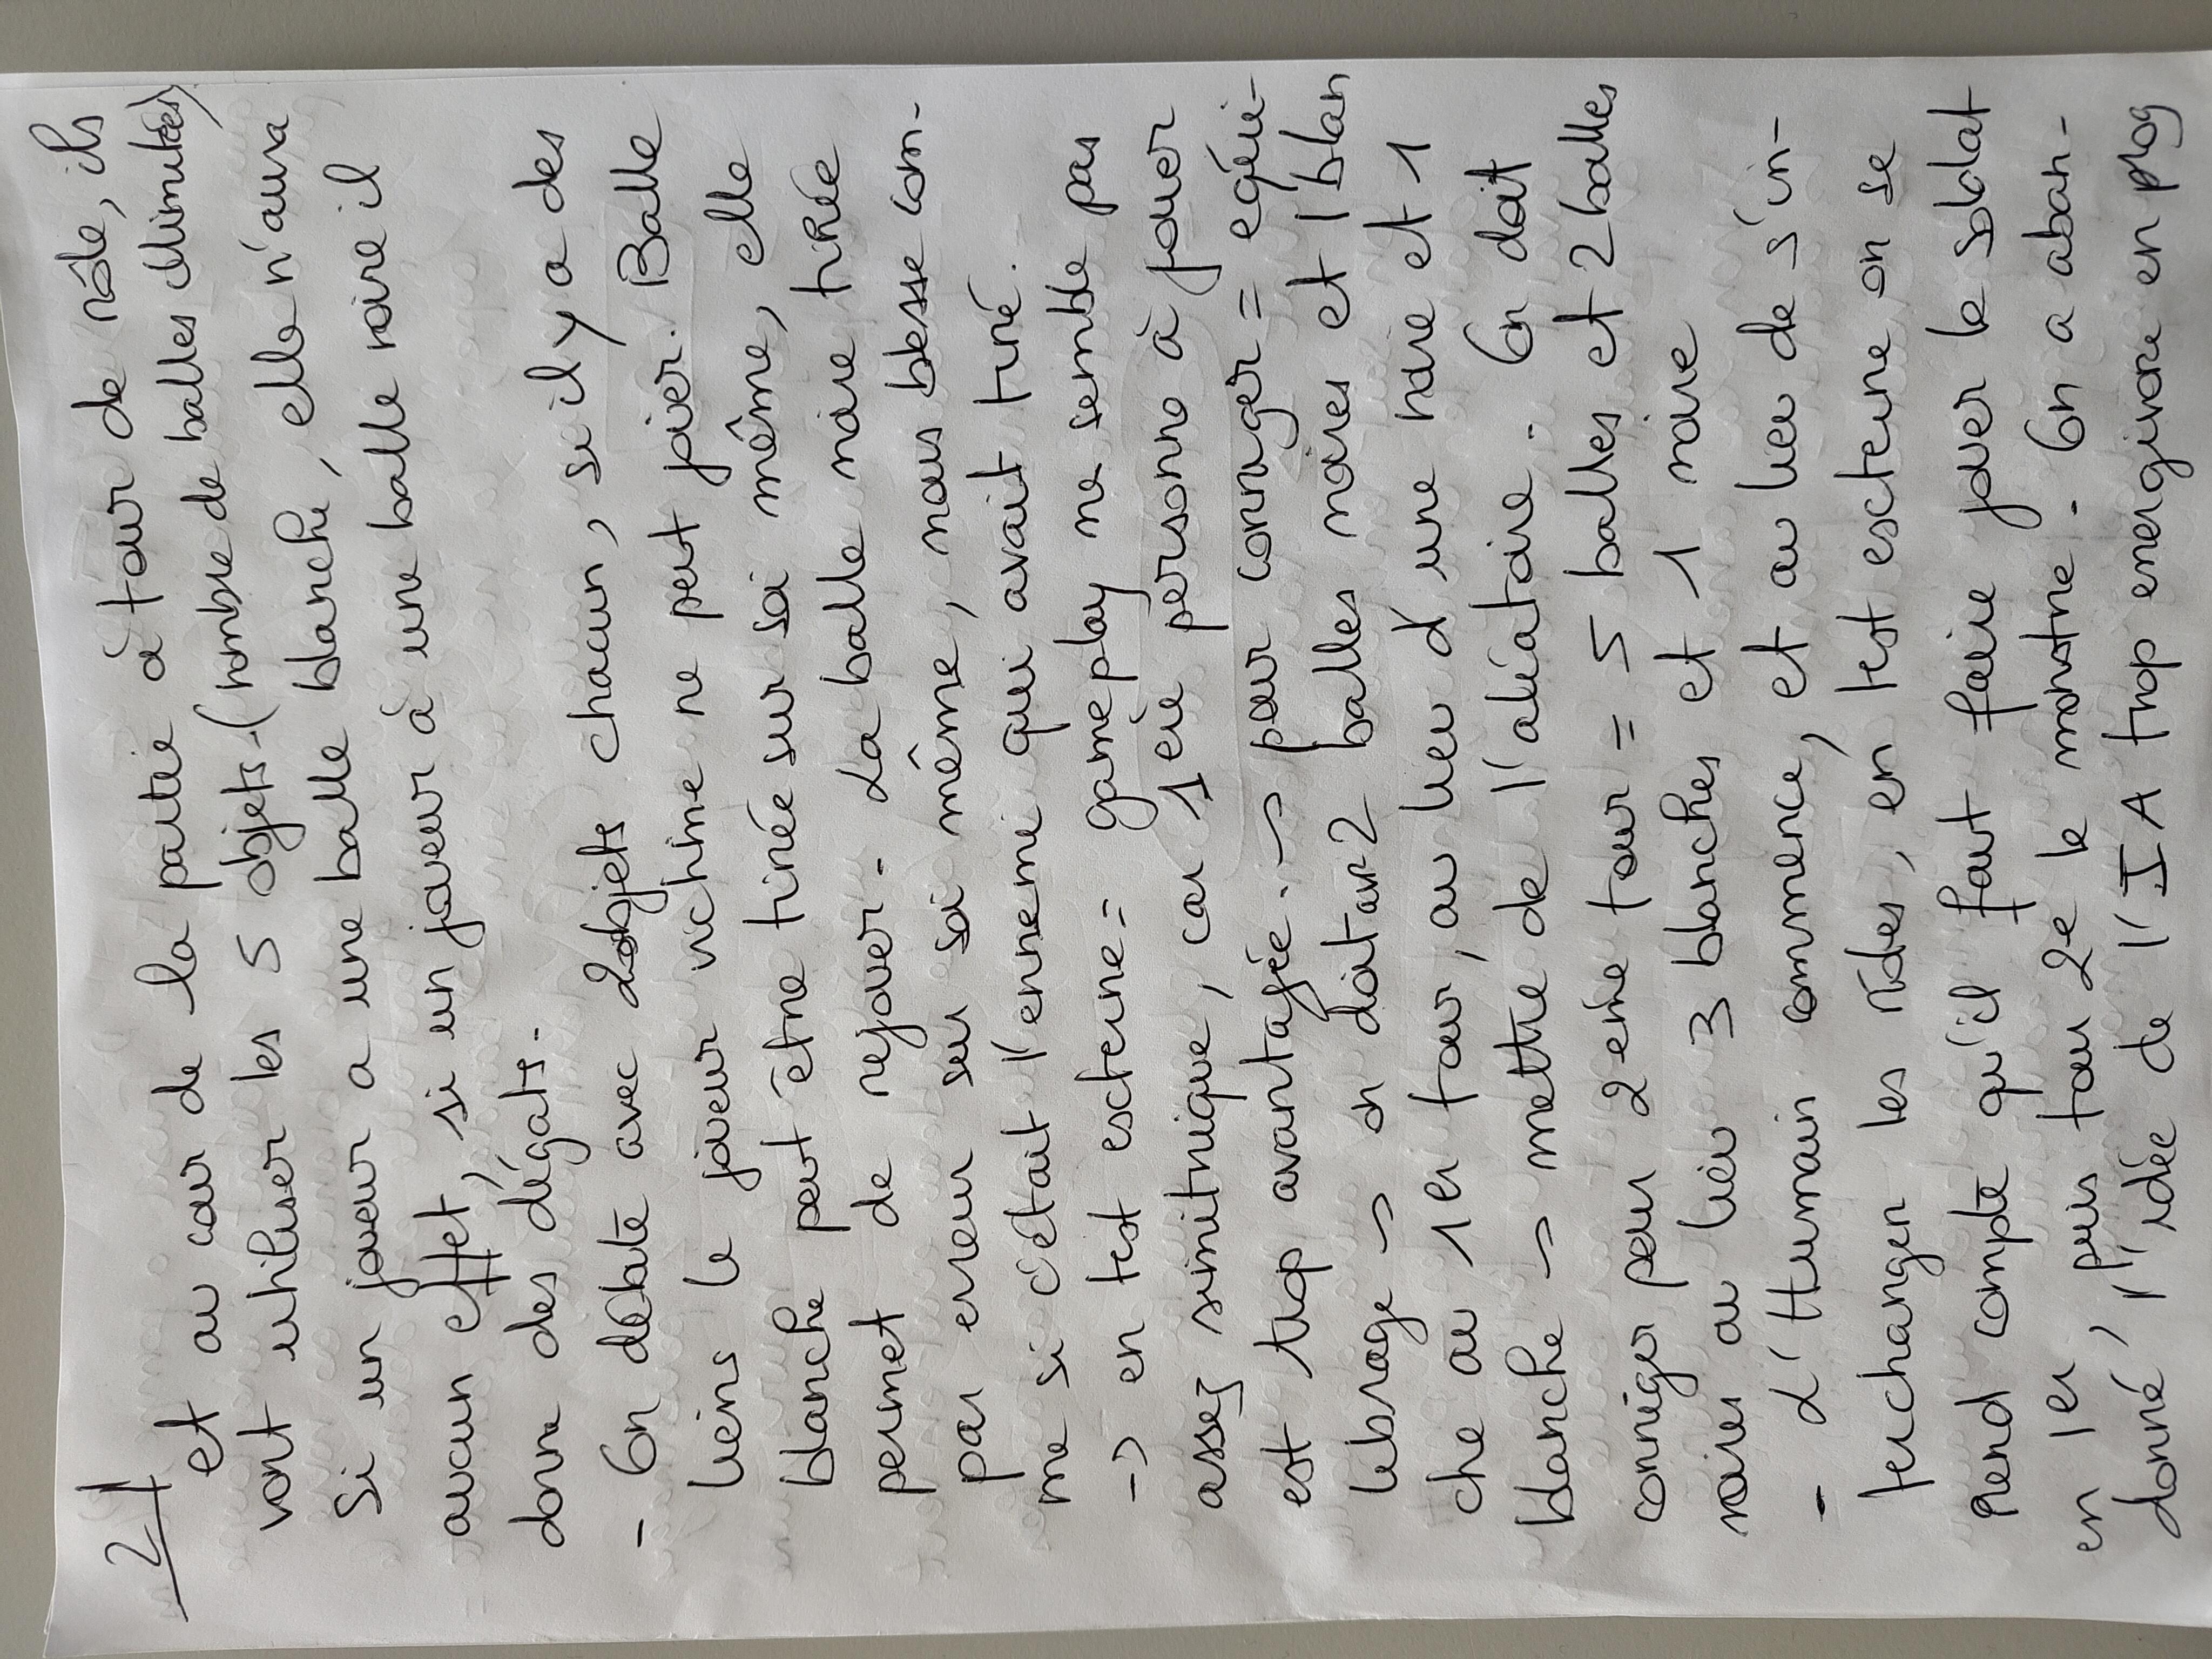 21
et au cour de la partie à tour de rôle, ils
vont utiliser les 5 objets. (nombre de balles illimitées)
Si un joueur a une balle blanche, elle n'aura
aucun effet, si un joueur à une balle noire il
donne des dégats.
- On débute avec 2 objets chacun, si il y a des
liens le joueur victime ne peut jouer. Balle
blanche peut être tirée sur soi même, elle
permet de rejouer. La balle noire tirée
par erreur sur soi même, nous blesse com-
me si c'était l'ennemi qui avait tiré.
-> en test externe = gameplay ne semble pas
assez simitrique, car 1ère personne à jouer
est trop avantagée. -> pour corriger = equi-
librage -> on doit avr 2 balles noires et 1 blan
che au 1er tour, au lieu d'une noire et 1
blanche -> mettre de l'aléatoire. On doit
corriger pour 2eme tour = 5 balles et 2 balles
noires au lieu 3 blanches et 1 noire
- L'Humain commence, et au lieu de s'in-
terchanger les rôles, en test externe on se
rend compte qu'il faut faire jouer le soldat
en 1er, puis tour 2e le monstre. On a aban-
donné l'idée de l'IA trop energivore en prog